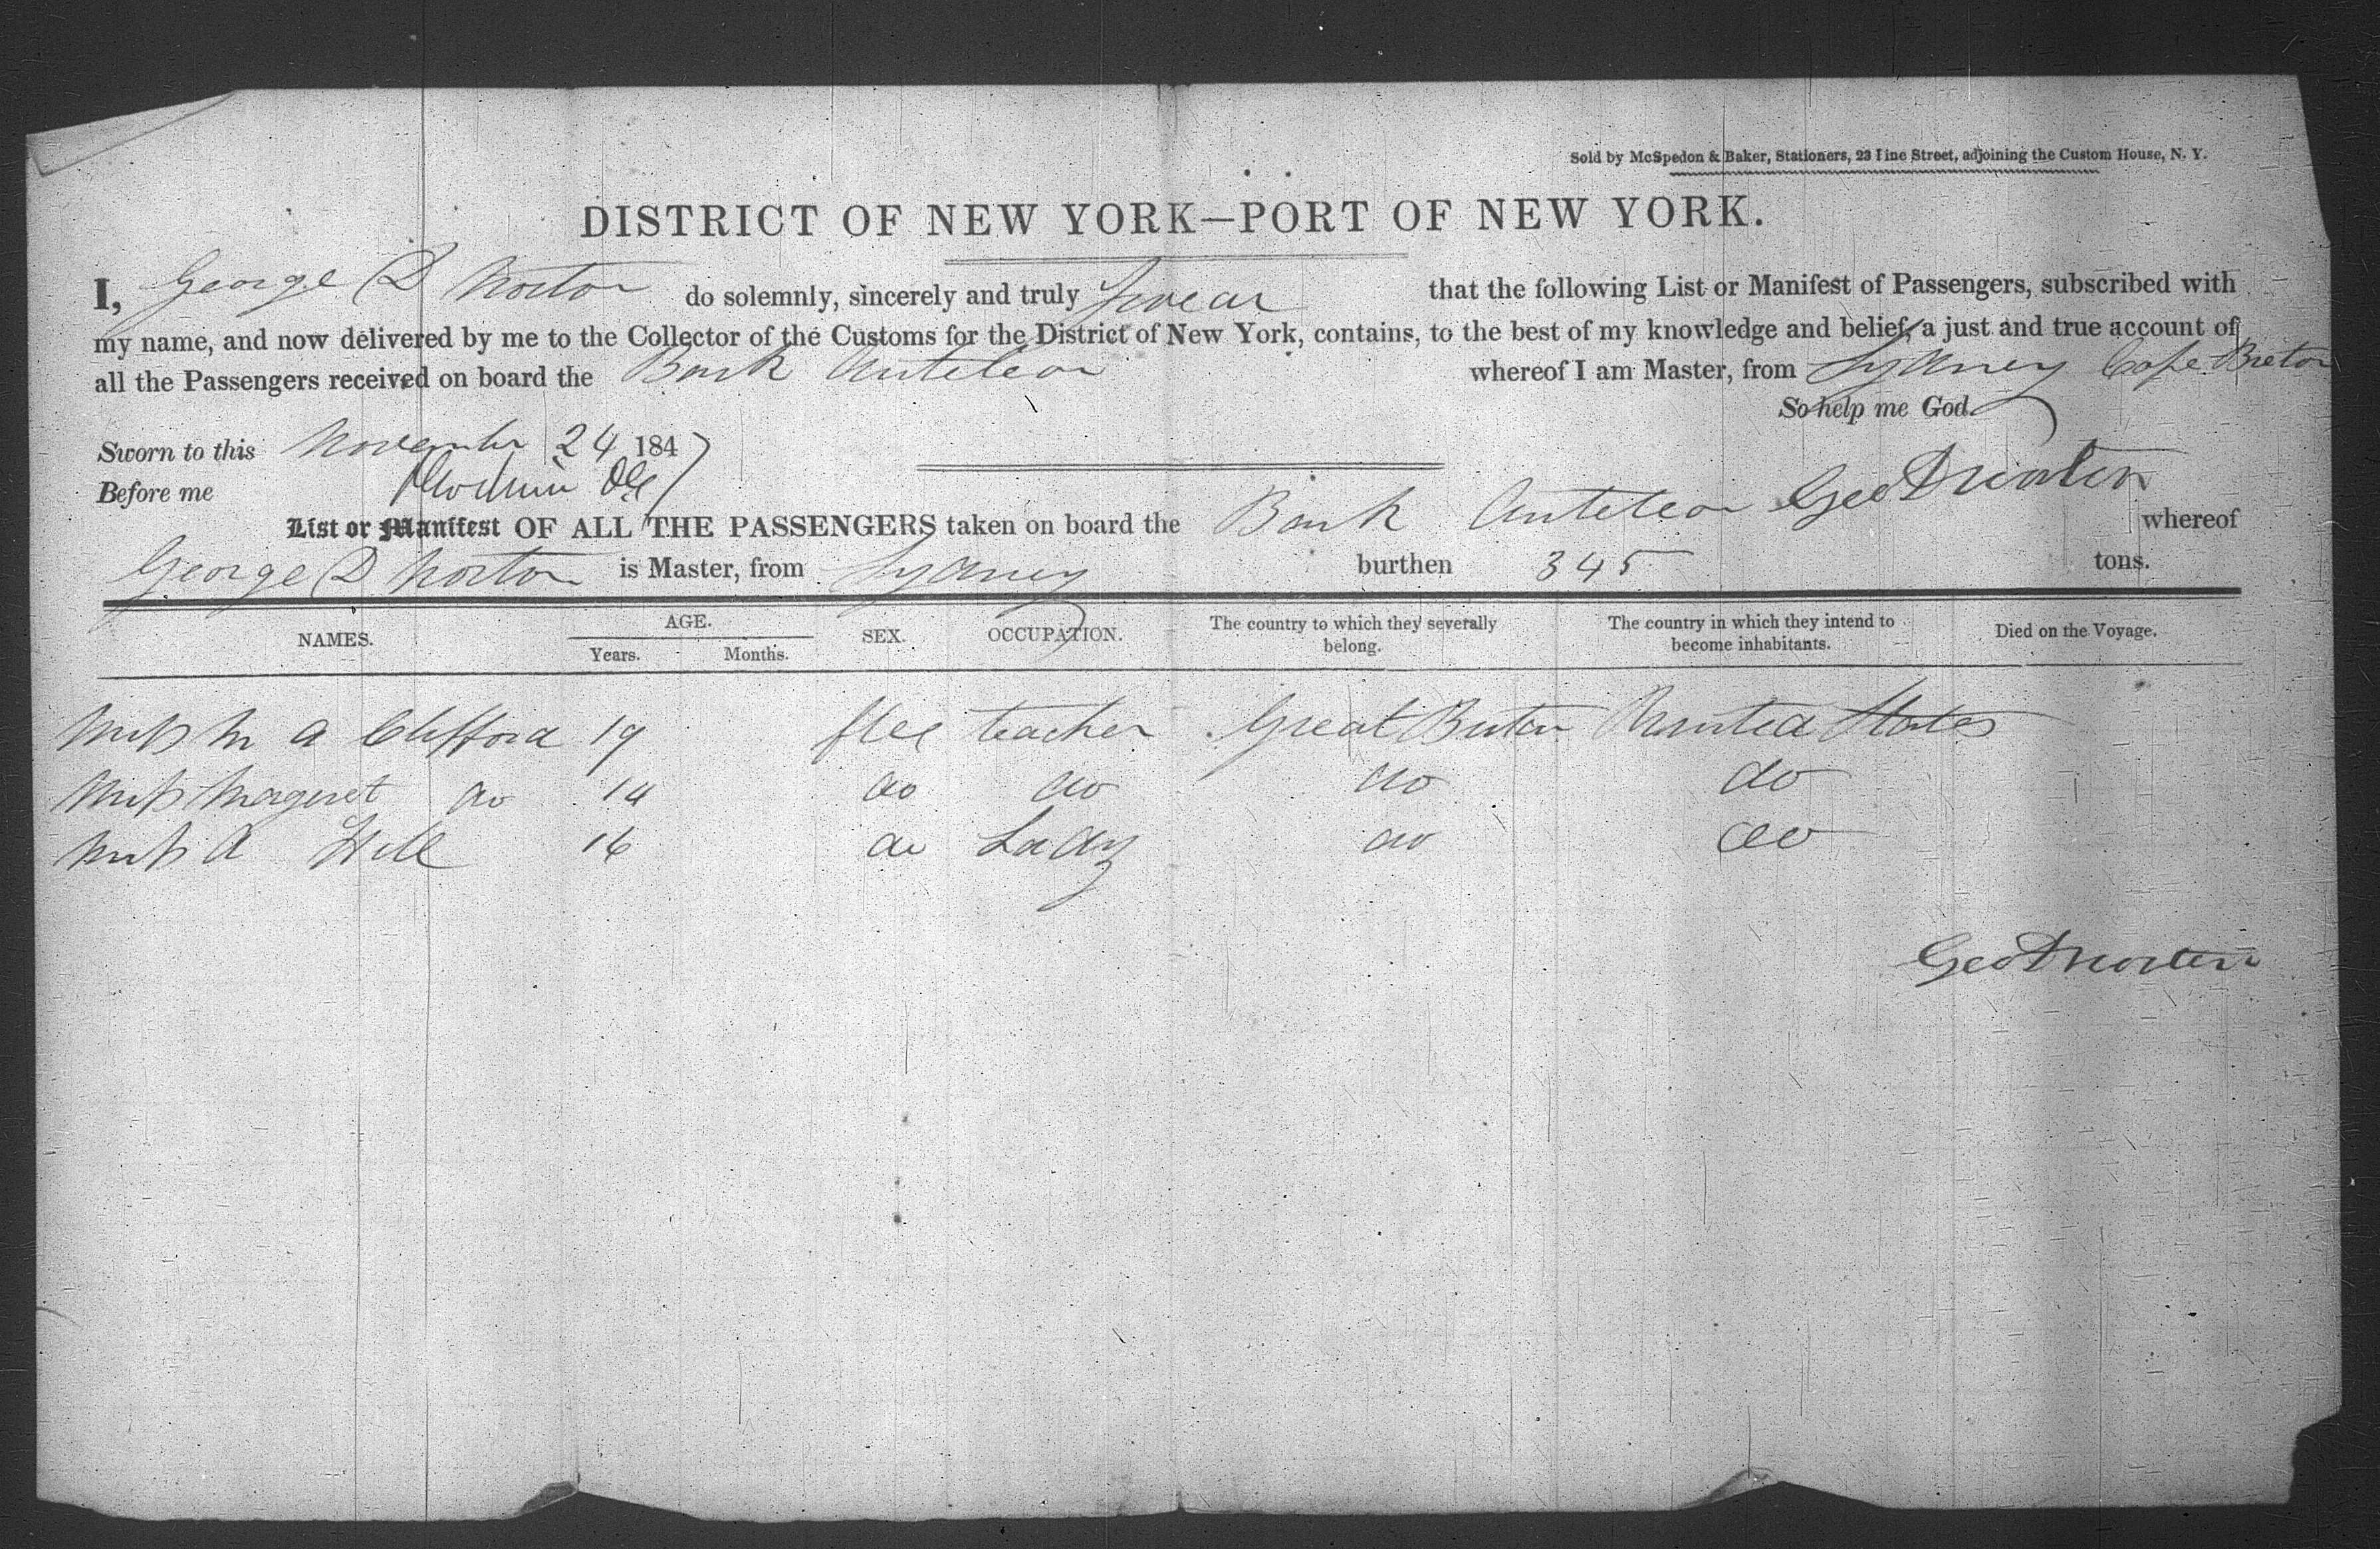 Sold by McSpedon & Baker, Stationers, 23 Pine Street, adjoining the Custom House, N. Y.
DISTRICT OF NEW YORK—PORT OF NEW YORK.
I, George D Norton do solemnly, sincerely and truly swear that the following List or Manifest of Passengers, subscribed with
my name, and now delivered by me to the Collector of the Customs for the District of New York, contains, to the best of my knowledge and belief, a just and true account of
all the Passengers received on board the Bark Anteleon whereof I am Master, from Sydney Cape Breton
So help me God.
Sworn to this November 24 1847
Before me
Geo D Norton
List or Manifest OF ALL THE PASSENGERS taken on board the Bark Anteleon whereof
George D Norton is Master, from Sydney burthen 345 tons.
NAMES. AGE. Years. Months. SEX. OCCUPATION. The country to which they severally belong. The country in which they intend to become inhabitants. Died on the Voyage.
Miss M A Clifford 19 teacher Great Britan United States
Miss Margeret do 14 do do do do
Miss A Hill 16 do Lady do do
Geo D Norton